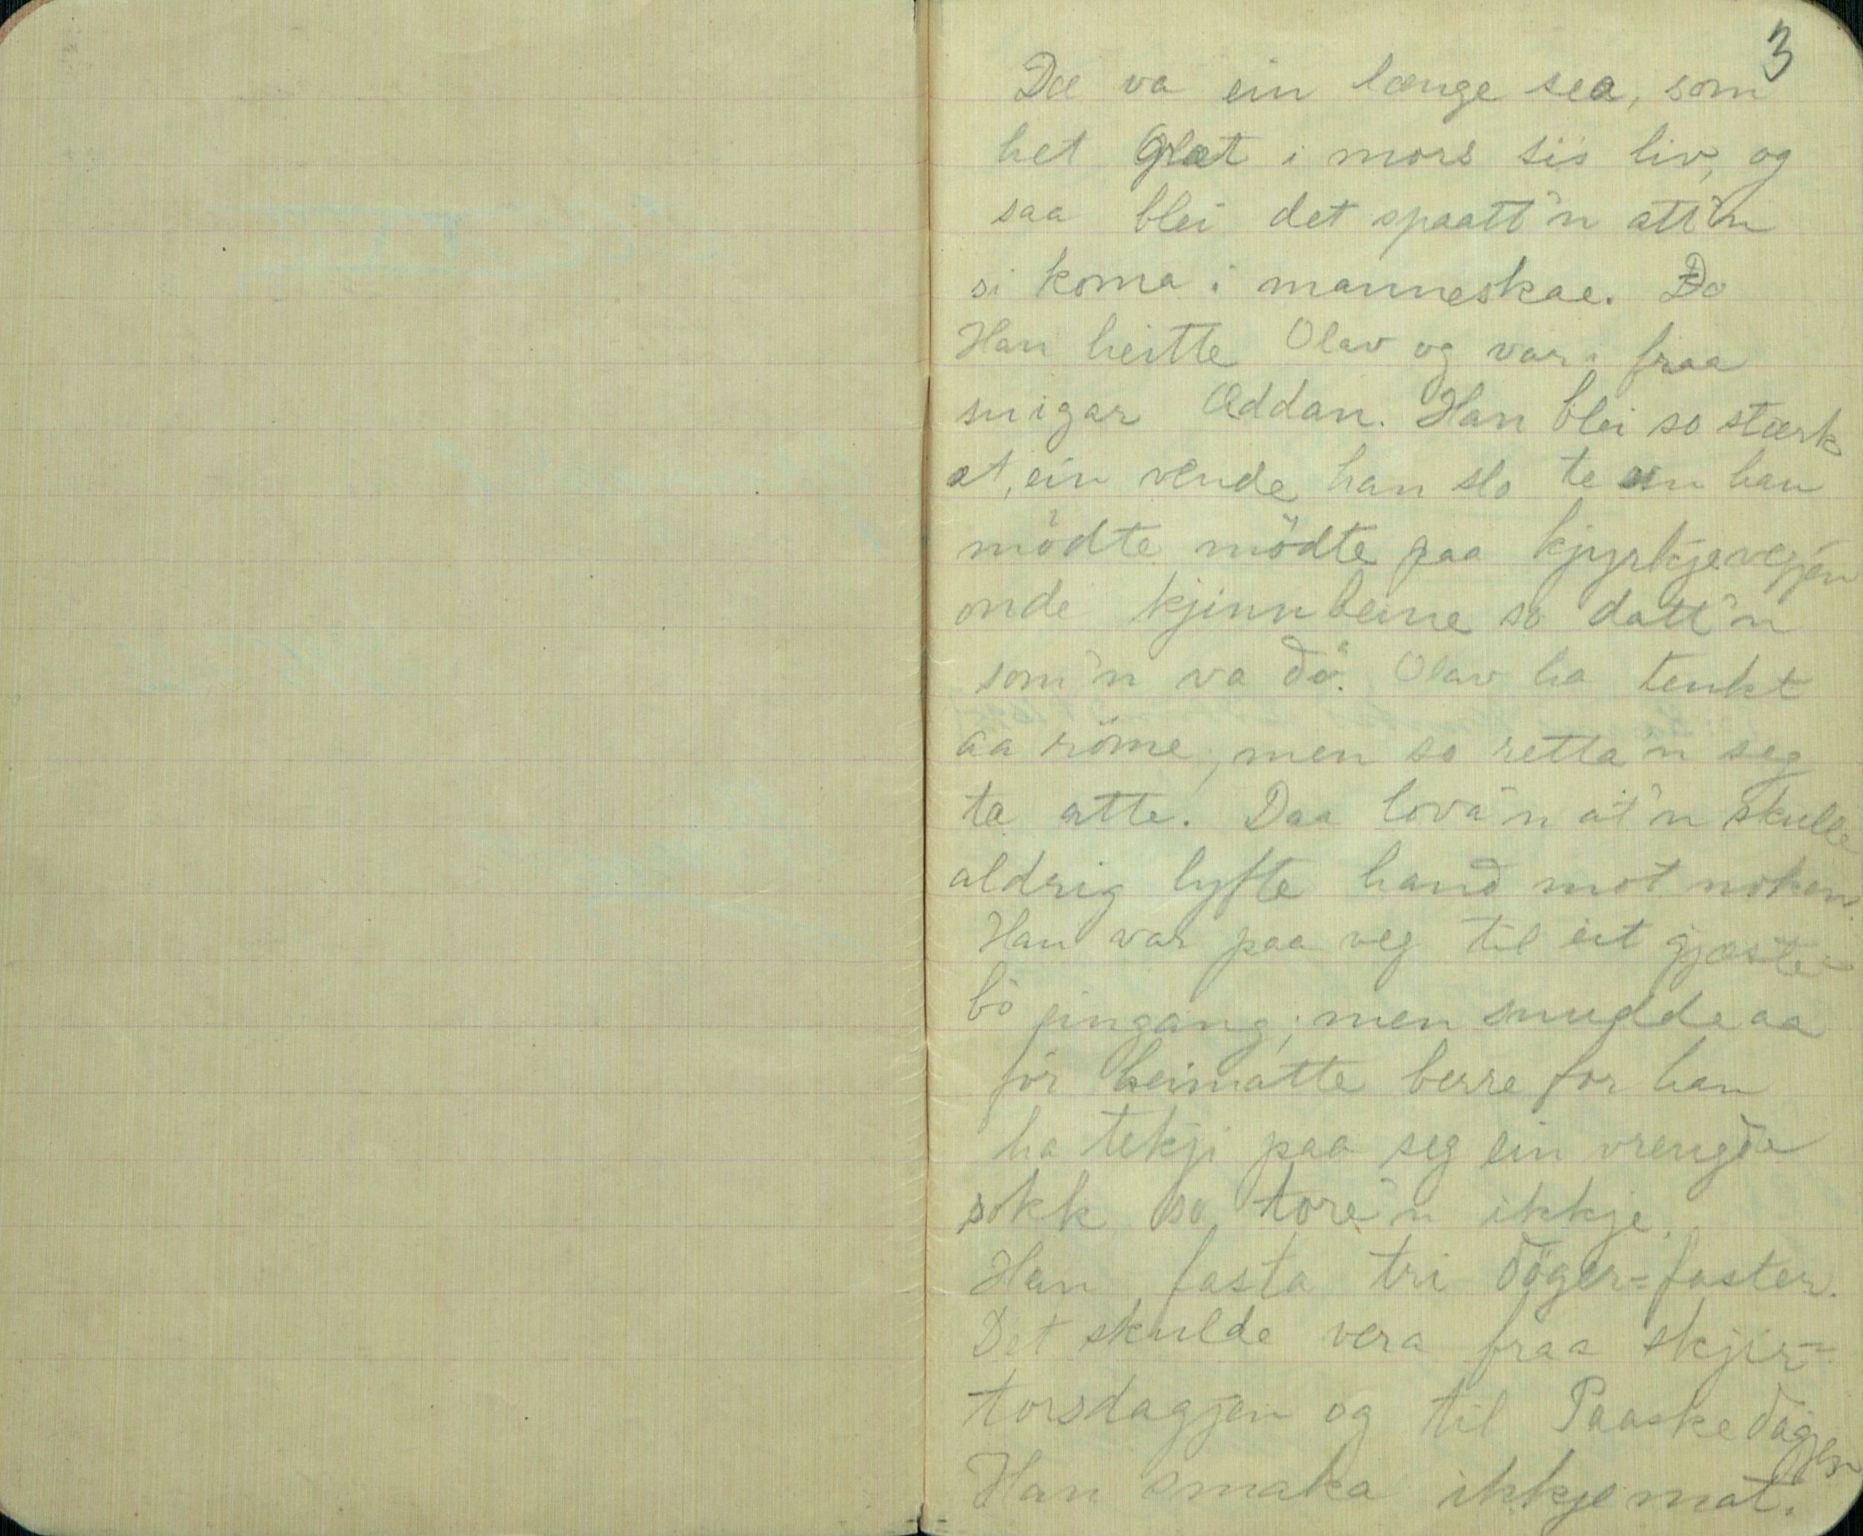 3
Dæ va ein længe sea, som
het Glæt i mors sis liv, og
saa blei det spaatt'n att'n
si koma i manneskae. Do
Han heitte Olav og var fraa
snigar Oddan. Han blei so stærk
at, ein vende han slo te ein han
mödte mödte paa kjyrkjevegjen
onde kjinnbeine so datt'n
som'n va dö. Olav ha tenkt
aa röme, men so retta'n seg
te atte. Daa lova'n at'n skulle
aldrig lyfte hand mot noken.
Han var paa veg til eit gjæste=
bö eingang; men snudde aa
för heimatte berre for han
ha tekji paa seg ein vrengde
sokk so tore'n ikkje.
Han fasta tri döger=faster.
Det skulde vera fraa skjir=
torsdagjen og til Paaskedagjen
Han smaka ikkje mat.